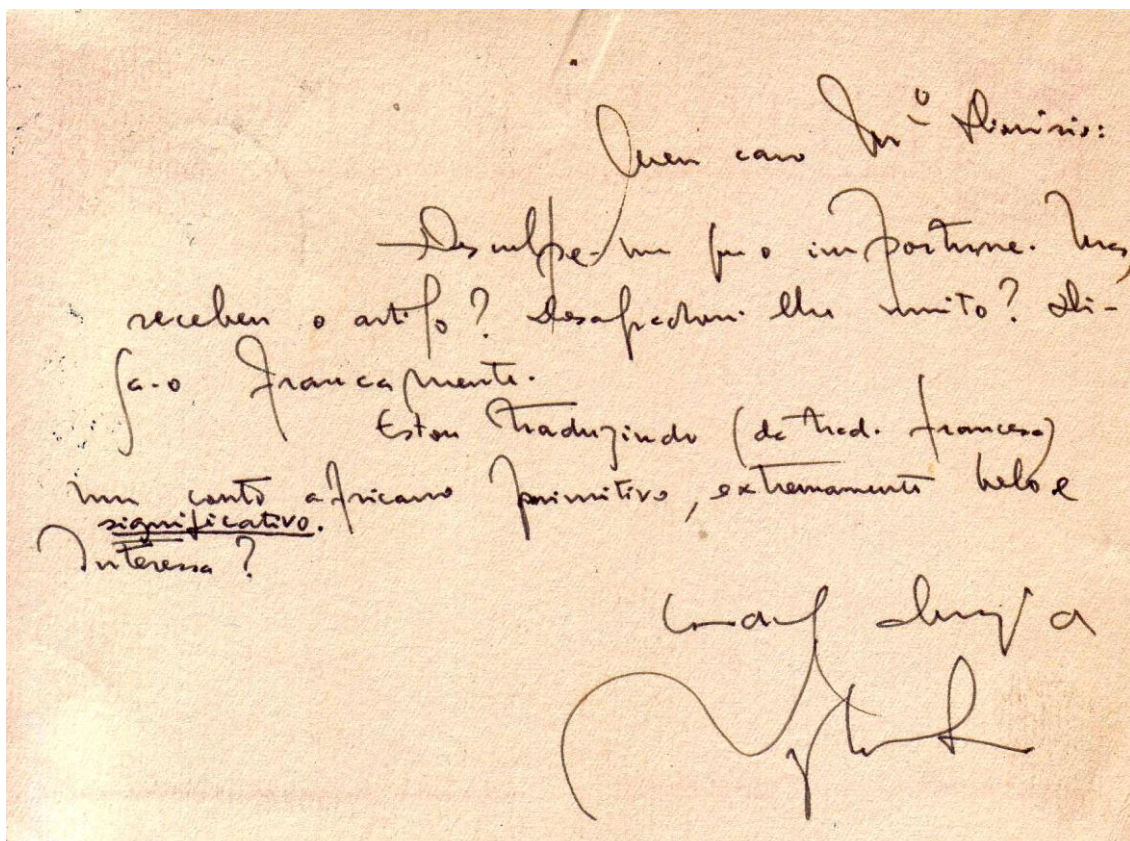 Meu caro Mº Dionísio:
Desculpe-me que o importune. Mas,
recebeu o artigo? Desagradou-lhe muito? Di-
ga-o francamente.
Estou traduzindo (da trad. francesa)
um conto africano primitivo, extremamente belo e
significativo.
Interessa?